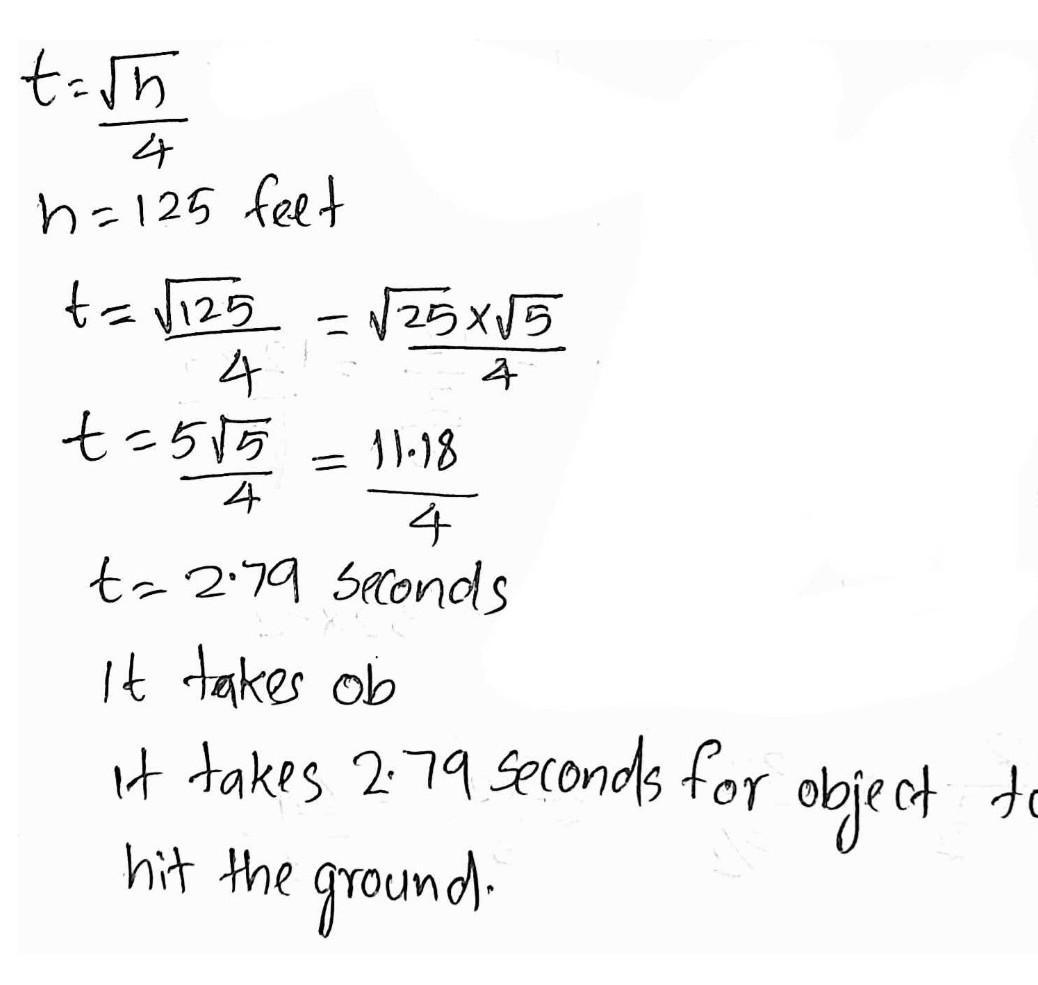 t=√h/4
h=125 feet
t=√125/4 = √25×√5/4
t=5√5/4 = 11.18/4
t=2.79 seconds
It takes ob
it takes 2.79 seconds for object to
hit the ground.